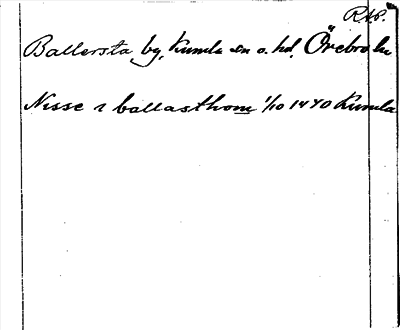 RAP.
Ballersta by, Kumla sn o. hd, Örebro län
Nisse i ballasthom 1/10 1440 Kumla